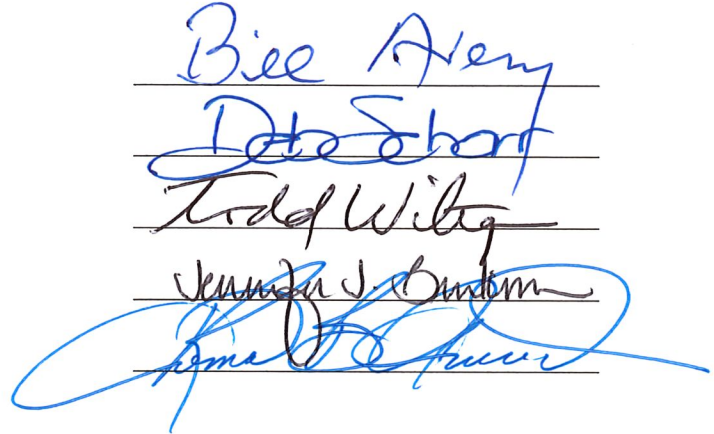 Bill Avery
Deb Schorr
Todd Wiltgen
Jennifer J. Brinkman
Roma